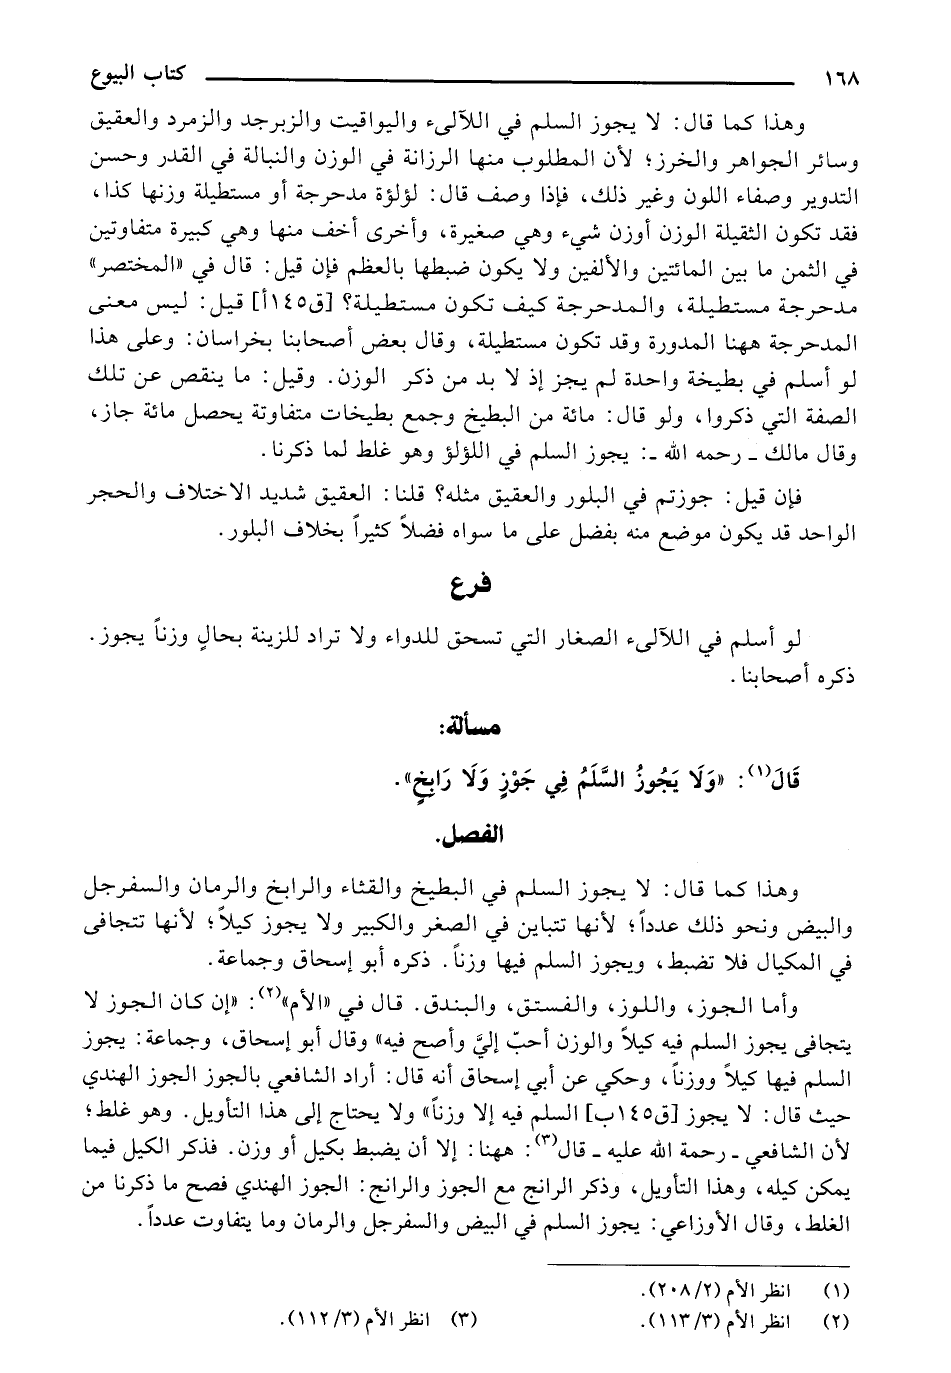 ١٦٨ كتاب البيوع
وهذا كما قال: لا يجوز السلم في اللآلىء واليواقيت والزبرجد والزمرد والعقيق
وسائر الجواهر والخرز؛ لأن المطلوب منها الرزانة في الوزن والنبالة في القدر وحسن
التدوير وصفاء اللون وغير ذلك، فإذا وصف قال: لؤلؤة مدحرجة أو مستطيلة وزنها كذا،
فقد تكون الثقيلة الوزن أوزن شيء وهي صغيرة، وأخرى أخف منها وهي كبيرة متفاوتين
في الثمن ما بين المائتين والألفين ولا يكون ضبطها بالعظم فإن قيل: قال في «المختصر»
مدحرجة مستطيلة، والمدحرجة كيف تكون مستطيلة؟ [ق١٤٥أ] قيل: ليس معنى
المدحرجة ههنا المدورة وقد تكون مستطيلة، وقال بعض أصحابنا بخراسان: وعلى هذا
لو أسلم في بطيخة واحدة لم يجز إذ لا بد من ذكر الوزن. وقيل: ما ينقص عن تلك
الصفة التي ذكروا، ولو قال: مائة من البطيخ وجمع بطيخات متفاوتة يحصل مائة جاز،
وقال مالك ـ رحمه الله ـ: يجوز السلم في اللؤلؤ وهو غلط لما ذكرنا.
فإن قيل: جوزتم في البلور والعقيق مثله؟ قلنا: العقيق شديد الاختلاف والحجر
الواحد قد يكون موضع منه بفضل على ما سواه فضلاً كثيراً بخلاف البلور.
فرع
لو أسلم في اللالىء الصغار التي تسحق للدواء ولا تراد للزينة بحالٍ وزناً يجوز.
ذكره أصحابنا.
مسألة:
قَالَ(١): «وَلَا يَجُوزُ السَّلَمُ فِي جَوْزٍ وَلَا رَابِخٍ».
الفصل.
وهذا كما قال: لا يجوز السلم في البطيخ والقثاء والرابخ والرمان والسفرجل
والبيض ونحو ذلك عدداً؛ لأنها تتباين في الصغر والكبير ولا يجوز كيلاً؛ لأنها تتجافى
في المكيال فلا تضبط، ويجوز السلم فيها وزناً. ذكره أبو إسحاق وجماعة.
وأما الجوز، واللوز، والفستق، والبندق. قال في «الأم»(٢): «إن كان الجوز لا
يتجافى يجوز السلم فيه كيلاً والوزن أحبّ إليَّ وأصح فيه» وقال أبو إسحاق، وجماعة: يجوز
السلم فيها كيلاً ووزناً، وحكي عن أبي إسحاق أنه قال: أراد الشافعي بالجوز الجوز الهندي
حيث قال: لا يجوز [ق١٤٥ب] السلم فيه إلا وزناً» ولا يحتاج إلى هذا التأويل. وهو غلط؛
لأن الشافعي ـ رحمة الله عليه ـ قال(٣): ههنا: إلا أن يضبط بكيل أو وزن. فذكر الكيل فيما
يمكن كيله، وهذا التأويل، وذكر الرانج مع الجوز والرانج: الجوز الهندي فصح ما ذكرنا من
الغلط، وقال الأوزاعي: يجوز السلم في البيض والسفرجل والرمان وما يتفاوت عدداً.
(١) انظر الأم (٢/ ٢٠٨).
(٢) انظر الأم (٣/ ١١٣). (٣) انظر الأم (٣/ ١١٢).